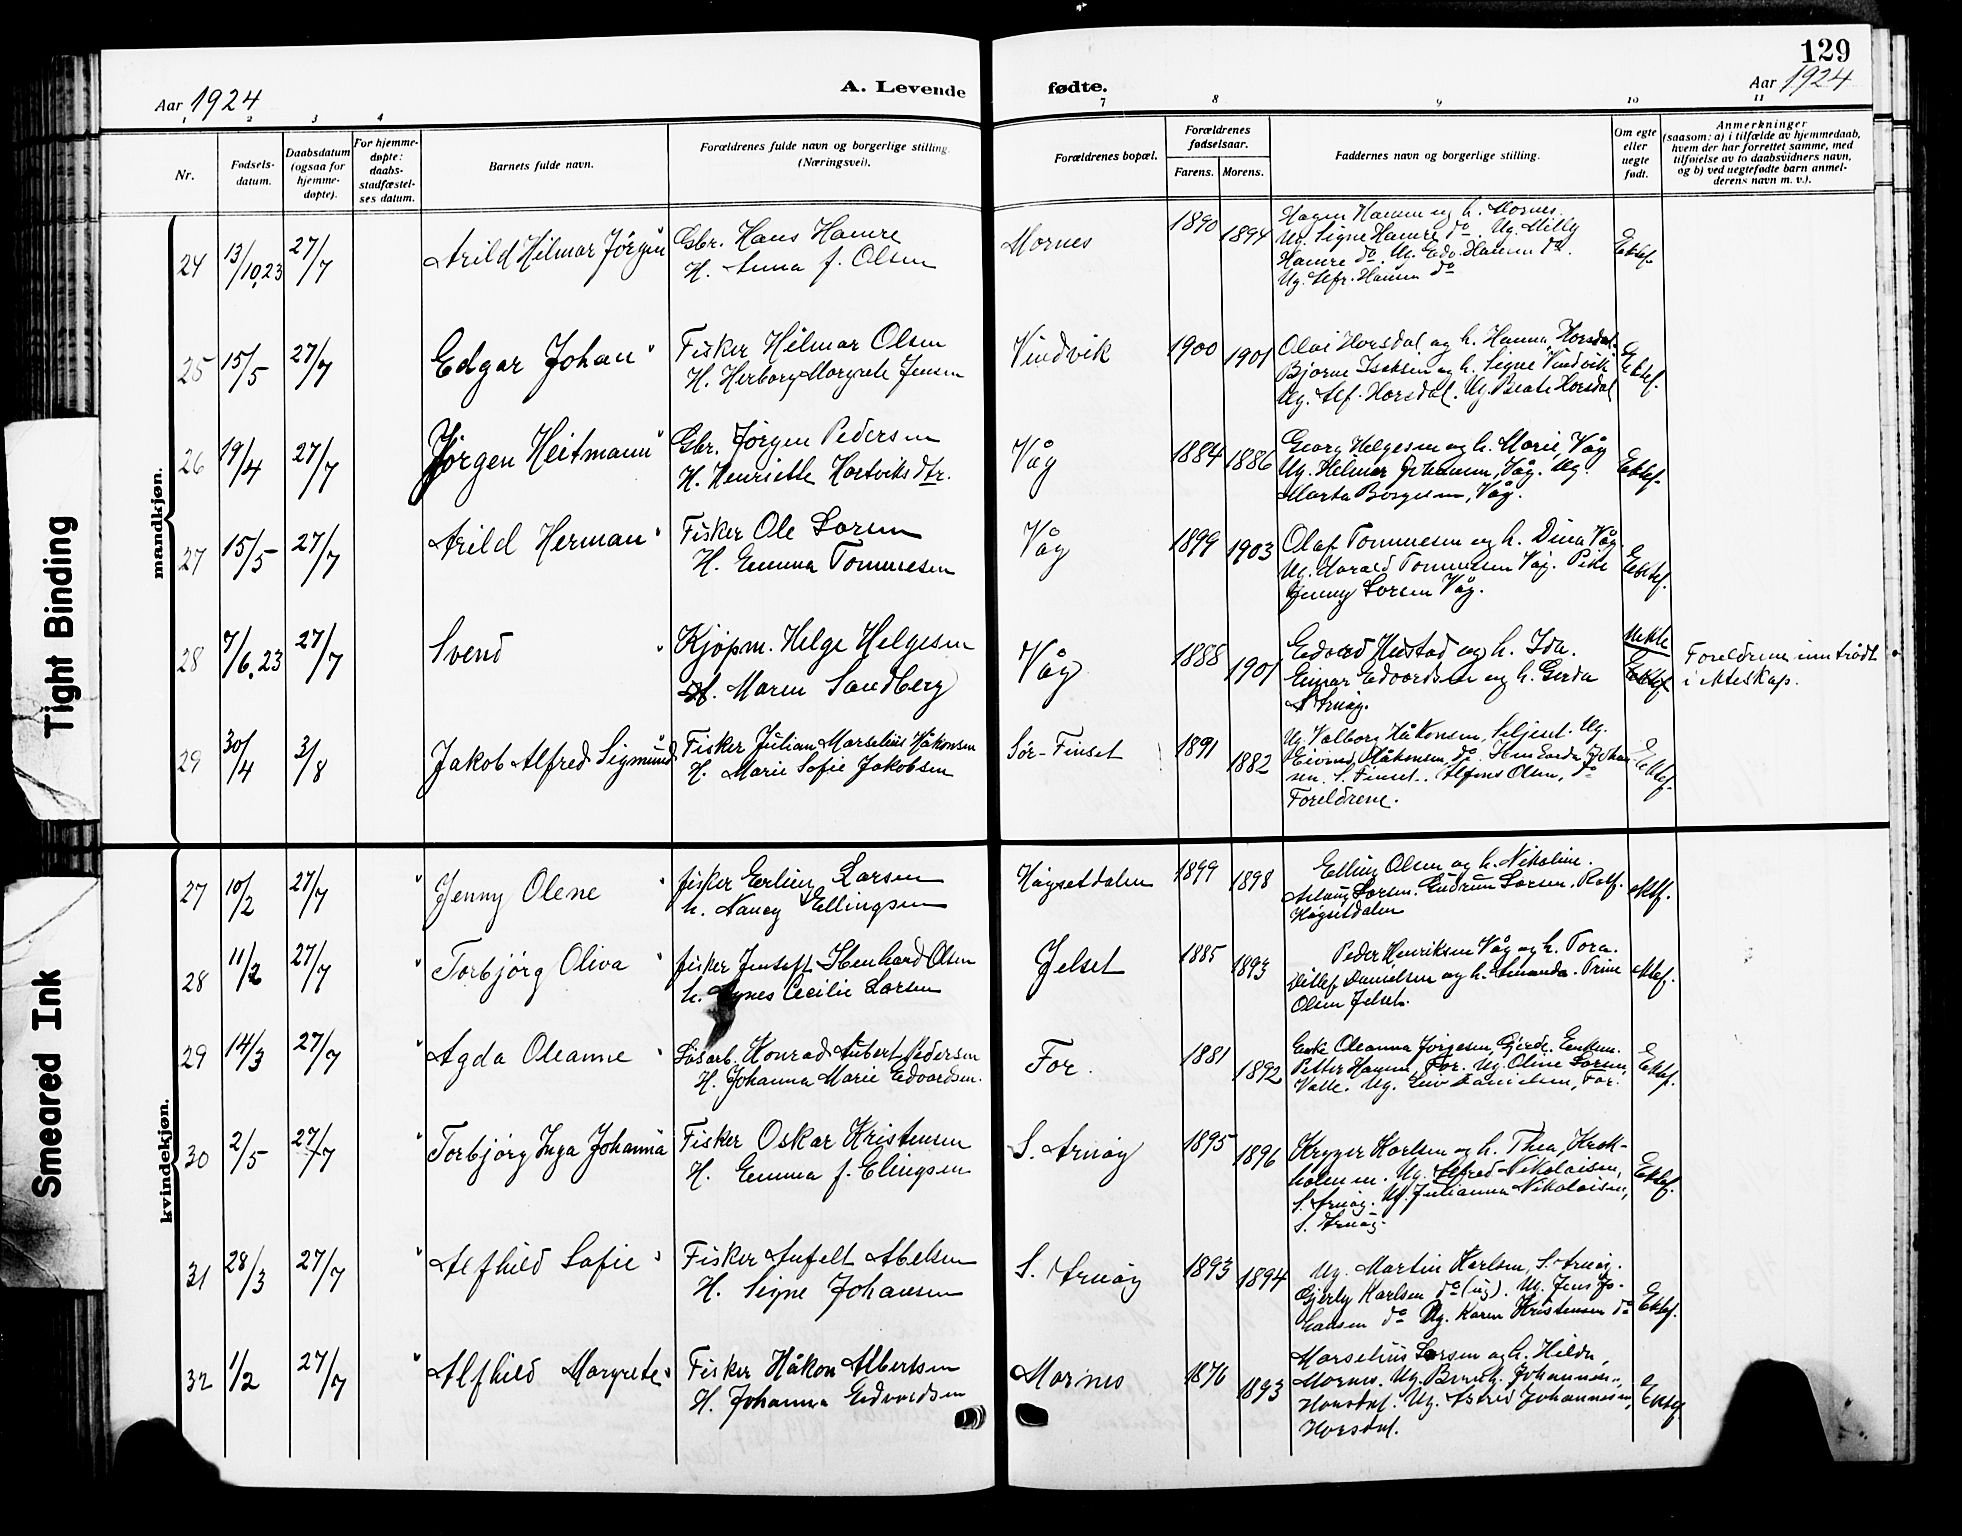 129
Aar 1924
A. Levende
fødte.
Aar 1924
1 2 3 4 7 8 9 10 11
Nr.
Fødsels-
datum.
Daabsdatum
(ogsaa for
hjemme-
døpte).
For hjemme-
døpte:
daabs-
stadfæstel-
ses datum.
Barnets fulde navn.
Forældrenes fulde navn og borgerlige stilling.
(Næringsvei).
Forældrenes bopæl.
Forældrenes
fødselsaar.
Farens. Morens.
Faddernes navn og borgerlige stilling.
Om egte
eller
uegte
født.
Anmerkninger
(saasom: a) i tilfælde av hjemmedaab,
hvem der har forrettet samme, med
tilføielse av to daabsvidners navn,
og b) ved uegtefødte barn anmel-
derens navn m. v.).
mandkjøn.
24 13/10.23 27/7 Arild Hilmar Jörgen
Gbr. Hans Hamre
H. Anna f. Olsen
Mornes 1890 1894
Hagen Hansen og h. Mornes.
Ug. Signe Hamre do. Ug. Milly
Hamre do. Ug. Edv. Hansen do.
Ug. Alfr. Hansen do
Ektef.
25 15/5 27/7 Edgar Johan
Fisker Hilmar Olsen
H. Herborg Margrete Jensen
Vindvik 1900 1901
Olai Horsdal og h. Hanna, Horsdal.
Bjarne Isaksen og h. Signe Vindvik
Ug. Alf. Horsdal. Ug. Beate Horsdal
Ektef.
26 19/4 27/7 Jörgen Heitmann
Gbr. Jörgen Pedersen
H. Henriette Hartviksdtr.
Våg 1884 1886
Georg Helgesen og h. Marie, Våg
Ug. Helmer Johansen, Våg. Ug.
Marta Börgesen, Våg.
Ektef.
27 15/5 27/7 Arild Herman
Fisker Ole Larsen
H. Emma Tommesen
Våg 1899 1903
Olaf Tommesen og h. Dina Våg.
Ug. Harald Tommesen Våg. Pike
Jenny Larsen Våg.
Ektef.
28 7/6.23 27/7 Svend
Kjøpm. Helge Helgesen
H. Maren Sandberg
Våg 1888 1901
Edvard Hustad og h. Ida.
Einar Edvardsen og h. Gerda
S Arnøy.
Uekte
Ektef
Foreldrene inntrådt
i ekteskap.
29 30/4 3/8 Jakob Alfred Sigmund
Fisker Julian Marselius Håkonsen
H. Marie Sofie Jakobsen
Sör-Finset 1891 1882
Ug. Valborg Håkonsen, Seljeset. Ug.
Eivind Håkonsen, do. Johan
sen. S. Finset. Alfons Olsen, do
Foreldrene.
Ektef.
kvindekjøn.
27 10/2 27/7 Jenny Olene
fisker Erling Larsen
h. Nancy Ellingsen
Högsetdalen 1899 1898
Elling Olsen og h. Nikoline.
Aslaug Larsen. Gudrun Larsen, Rolf.
Högsetdalen
ektf.
28 11/2 27/7 Torbjörg Oliva
fisker Jentoft Ibenhard Olsen
h. Agnes Cecilie Larsen
Jelset 1885 1893
Peder Henriksen Våg og h. Tora.
Ditlef Danielsen og h. Amanda. Trine
Olsen Jelset.
ektef.
29 14/3 27/7 Agda Oleanne
Lösarb. Konrad Aubert Pedersen
H. Johanna Marie Edvardsen.
For. 1881 1892
Enke Oleanna Jörgesen, Gjerde. Enkem.
Petter Hansen, For. Ug. Oline Larsen,
Valle. Ug. Danielsen, For.
Ektef.
30 2/5 27/7 Torbjörg Inga Johanna
Fisker Oskar Kristensen
H. Emma f. Elingsen
S. Arnöy 1895 1896
Kryger Karlsen og h. Thea, Krok-
holmen. Ug. Alfred Nikolaisen,
S. Arnöy. Ug. Julianna Nikolaisen,
S. Arnöy.
Ektef.
31 28/3 27/7 Alfhild Sofie
Fisker Anfelt Abelsen
H. Signe Johansen
S. Arnöy 1893 1894
Ug. Martin Karlsen, S. Arnöy.
Gjerly Karlsen do (ug). Ug. Jens Jo-
hansen do Ug. Karen Kristensen do
Ektef.
32 1/2 27/7 Alfhild Margrete
Fisker Håkon Albertsen
H. Johanna Edvardsen
Mornes 1876 1893
Marselius Larsen og h. Hilda,
Mornes. Ug. Johannesen,
Horsdal. Ug. Astrid Johannesen,
Horsdal.
Ektef
Tight Binding
Smeared Ink